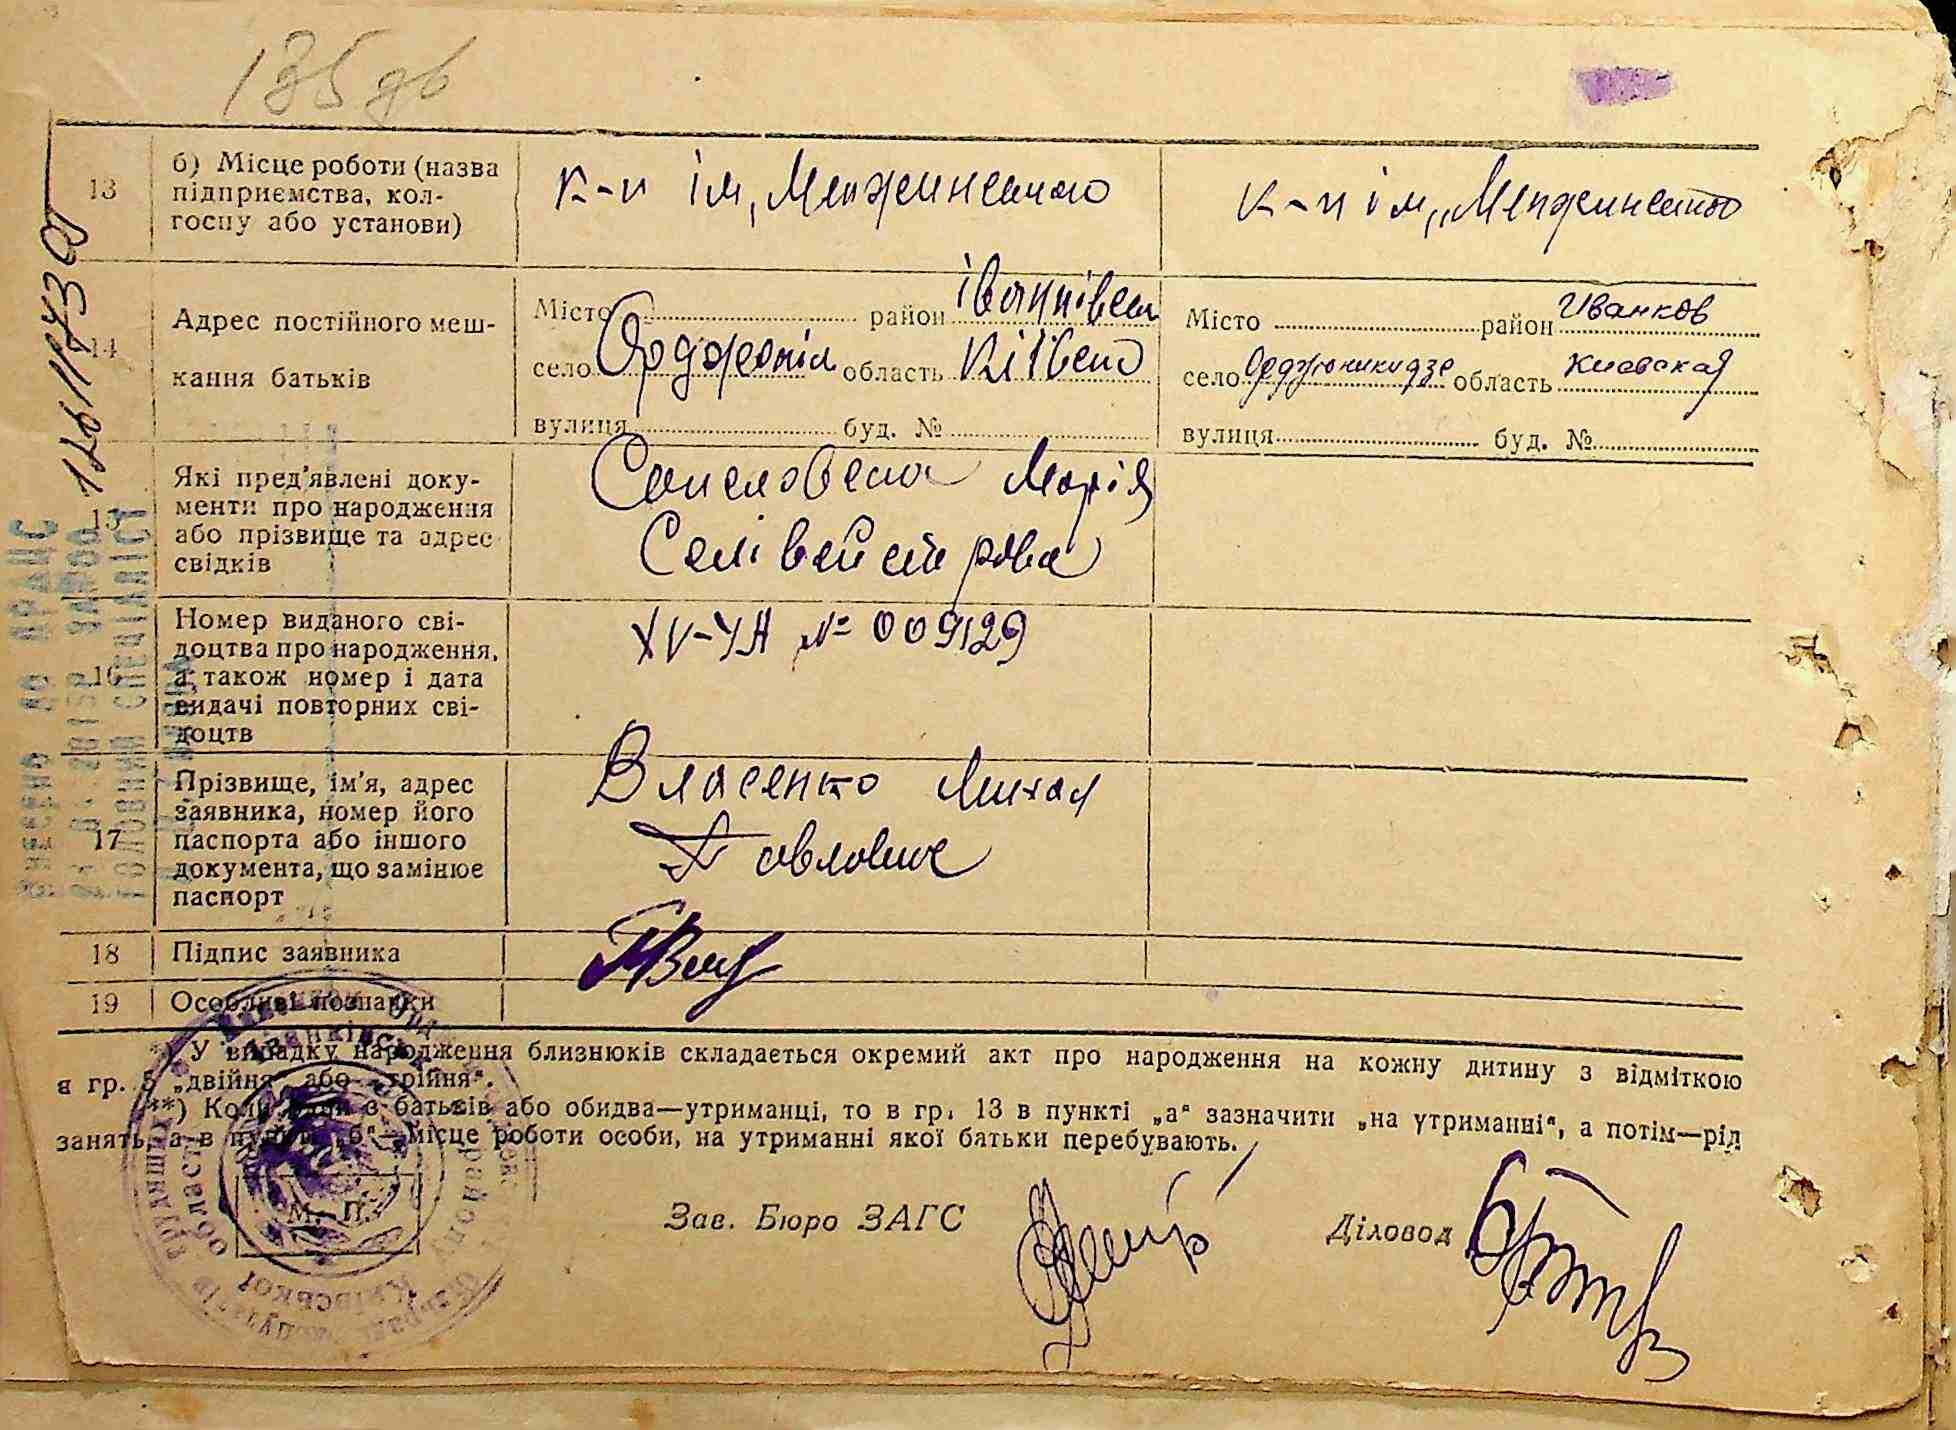 135 дв
13
б) Місце роботи (назва
підприємства, кол-
госпу або установи)
к-п ім, Менжинского
к-п ім „Менжинского
14
Адрес постійного меш-
кання батьків
Місто район Іванківськ
село Орджонік область Київськ
вулиця буд. №
Місто район Иванков
село Орджоникидзе область Киевская
вулиця буд. №
15
Які пред'явлені доку-
менти про народження
або прізвище та адрес
свідків
Марія
Селівейстровна
16
Номер виданого сві-
доцтва про народження,
а також номер і дата
видачі повторних сві-
доцтв
XV-УА № 009129
17
Прізвище, ім'я, адрес
заявника, номер його
паспорта або іншого
документа, що замінює
паспорт
Власенко Михал
Павлович
18
Підпис заявника
19
Особливі познаки
*) У випадку народження близнюків складається окремий акт про народження на кожну дитину з відміткою
в гр. 5 „двійня" або „трійня".
**) Коли один з батьків або обидва—утриманці, то в гр. 13 в пункті „а" зазначити „на утриманні", а потім—рід
занять, а в пункті „б"—місце роботи особи, на утриманні якої батьки перебувають.
М. П.
Зав. Бюро ЗАГС
Діловод
Внесено до ДРАЦС
головний спеціаліст
Київської області